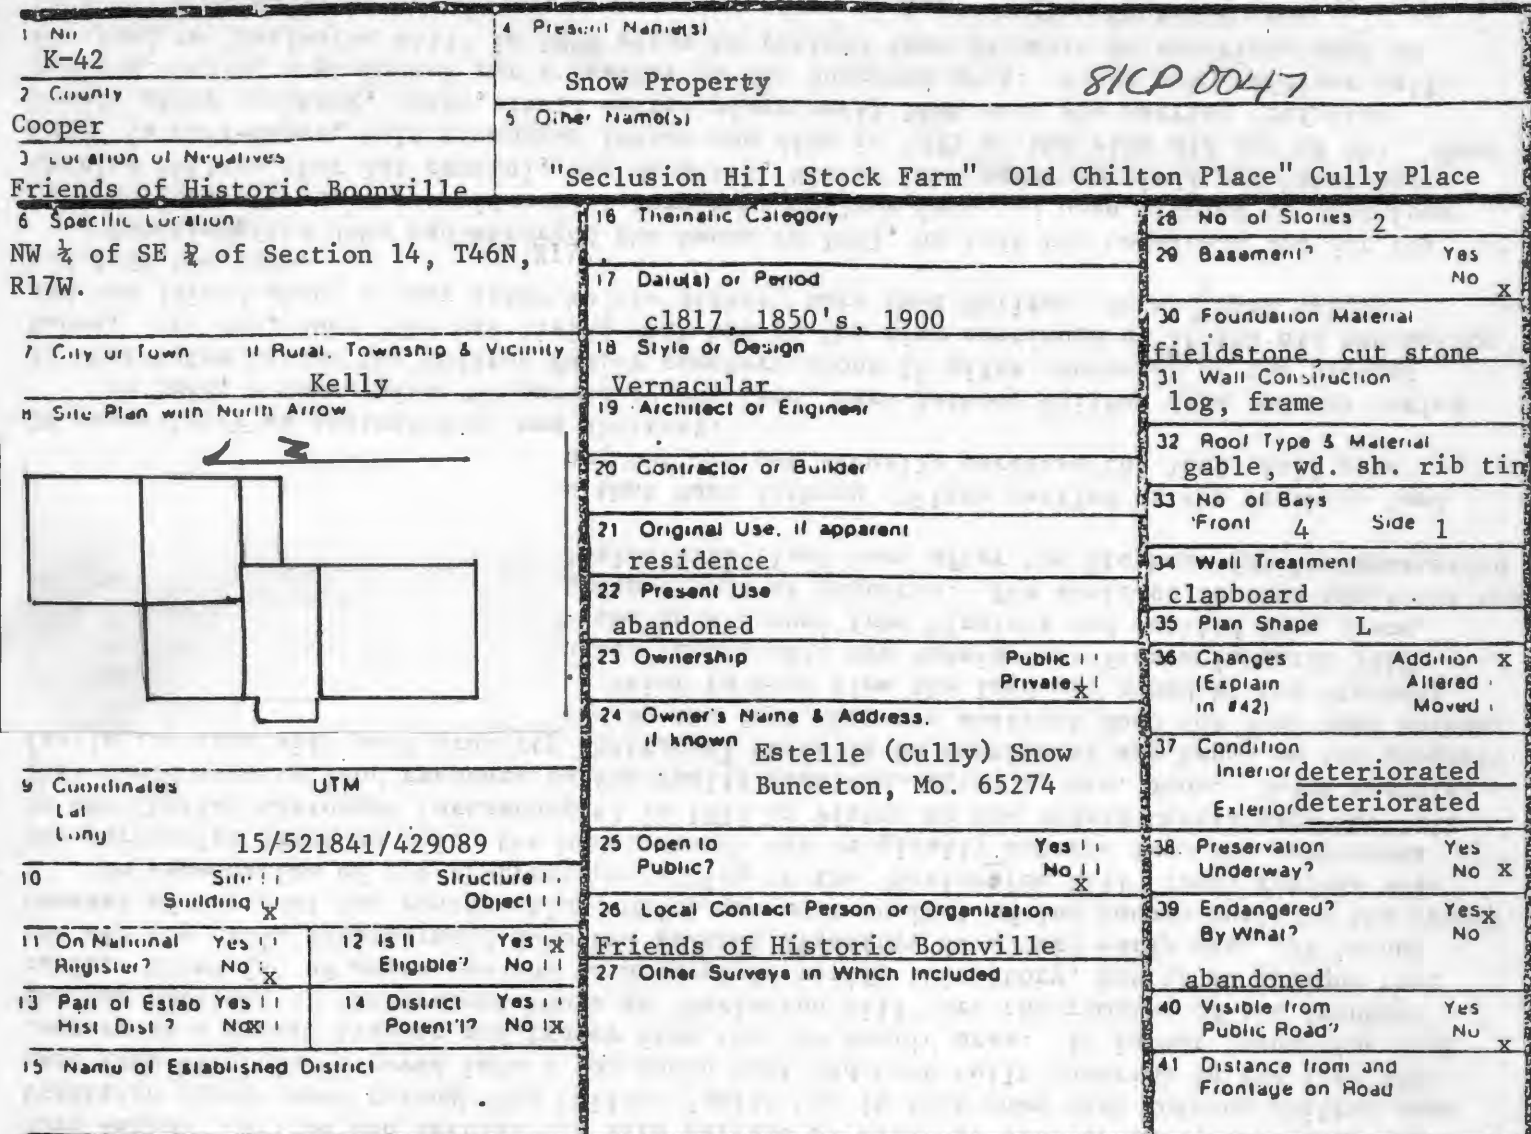 1 No
K-42
4 Present Name(s)
Snow Property
81CP 0047
2 County
Cooper
5 Other Name(s)
"Seclusion Hill Stock Farm" Old Chilton Place" Cully Place
3 Location of Negatives
Friends of Historic Boonville
6 Specific Location
NW ¼ of SE ¼ of Section 14, T46N,
R17W.
7 City or Town If Rural, Township & Vicinity
Kelly
8 Site Plan with North Arrow
9 Coordinates UTM
Lat
Long
15/521841/429089
10 Site Structure
Building x Object
11 On National Register? Yes No x
12 Is It Eligible? Yes x No
13 Part of Estab Hist Dist? Yes No x
14 District Potent'l? Yes No x
15 Name of Established District
16 Thematic Category
17 Date(s) or Period
c1817, 1850's, 1900
18 Style or Design
Vernacular
19 Architect or Engineer
20 Contractor or Builder
21 Original Use, if apparent
residence
22 Present Use
abandoned
23 Ownership Public
Private x
24 Owner's Name & Address,
if known
Estelle (Cully) Snow
Bunceton, Mo. 65274
25 Open to Yes
Public? No x
26 Local Contact Person or Organization
Friends of Historic Boonville
27 Other Surveys in Which Included
28 No of Stories 2
29 Basement? Yes
No x
30 Foundation Material
fieldstone, cut stone
31 Wall Construction
log, frame
32 Roof Type & Material
gable, wd. sh. rib tin
33 No of Bays
Front 4 Side 1
34 Wall Treatment
clapboard
35 Plan Shape L
36 Changes Addition x
(Explain Altered
in #42) Moved
37 Condition
Interior deteriorated
Exterior deteriorated
38 Preservation Yes
Underway? No x
39 Endangered? Yes x
By What? No
abandoned
40 Visible from Yes
Public Road? No x
41 Distance from and
Frontage on Road